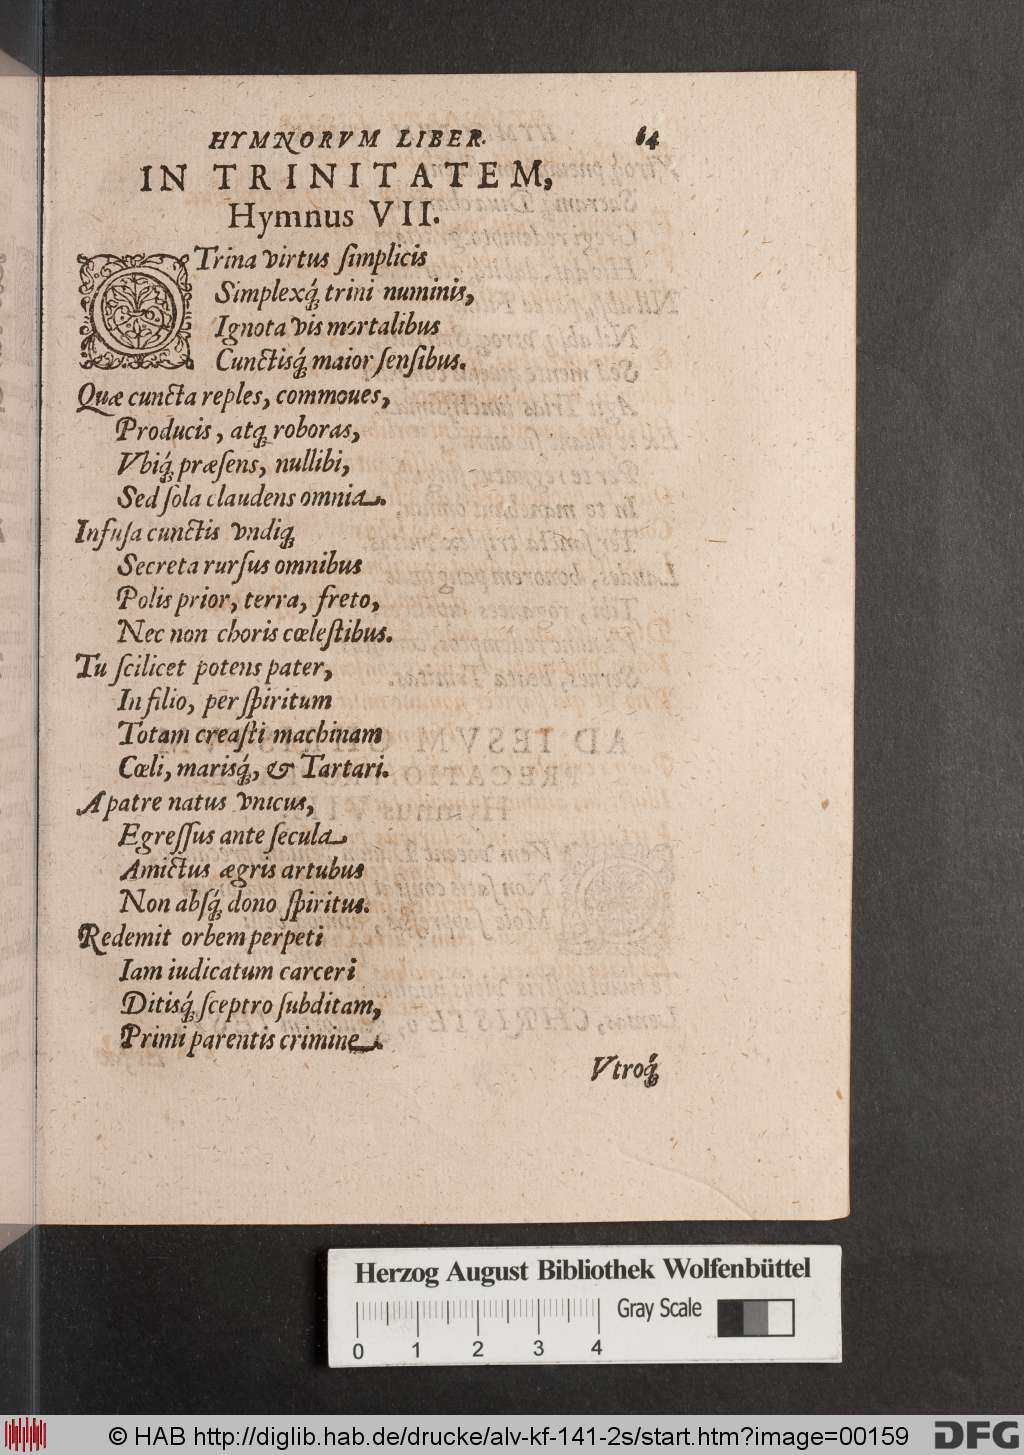 HYMNORVM LIBER. 64
IN TRINITATEM,
Hymnus VII.
O Trina virtus ſimplicis
Simplexq́; trini numinis,
Ignota vis mortalibus
Cunctisq́; maior ſenſibus.
Quæ cuncta reples, commoues,
Producis, atq; roboras,
Vbiq́; præſens, nullibi,
Sed ſola claudens omnia.
Infuſa cunctis vndiq;
Secreta rurſus omnibus
Polis prior, terra, freto,
Nec non choris cœleſtibus.
Tu ſcilicet potens pater,
In filio, per ſpiritum
Totam creaſti machinam
Cœli, marisq́;, & Tartari.
A patre natus vnicus,
Egreſſus ante ſecula
Amictus ægris artubus
Non abſq́; dono ſpiritus.
Redemit orbem perpeti
Iam iudicatum carceri
Ditisq́; ſceptro ſubditam,
Primi parentis crimine.
Vtroq́;
Herzog August Bibliothek Wolfenbüttel
Gray Scale
0 1 2 3 4
© HAB http://diglib.hab.de/drucke/alv-kf-141-2s/start.htm?image=00159
DFG